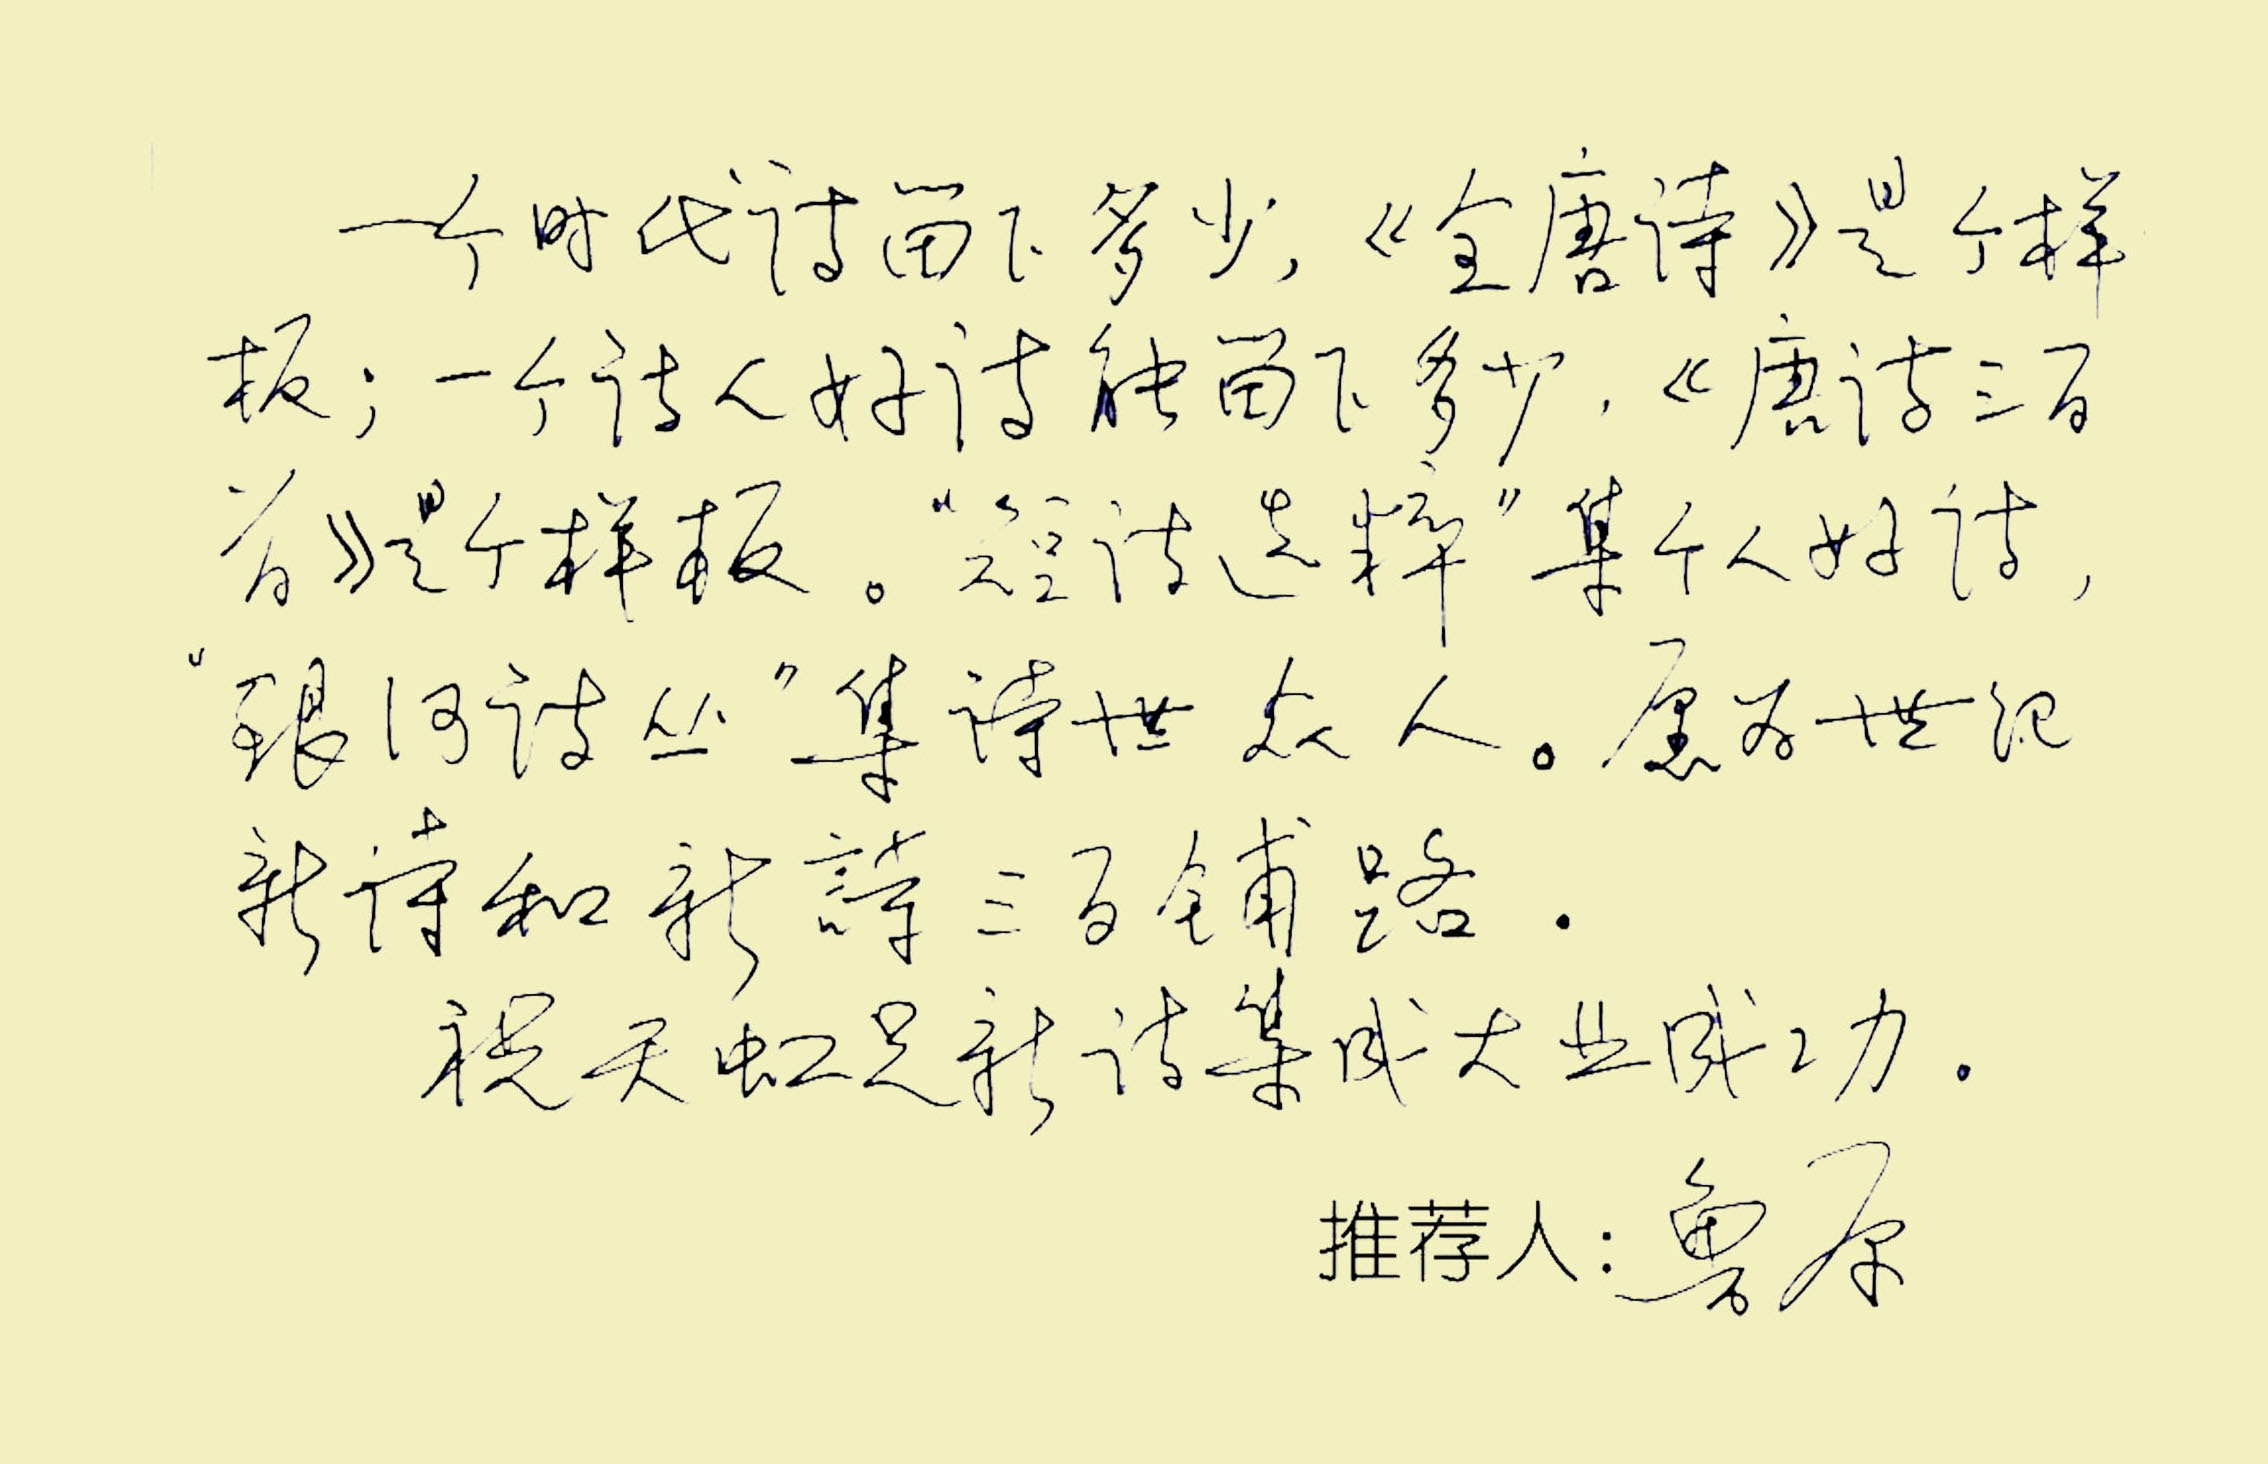 一个时代诗留下多少,《全唐诗》是个样
板;一个诗人好诗能留下多少,《唐诗三百
首》是个样板。“短诗选粹”集个人好诗,
“银河诗丛”集诗世众人。愿为世纪
新诗和新詩三百铺路.
祝天虹兄新诗集成大业成功.
推荐人:鲁原